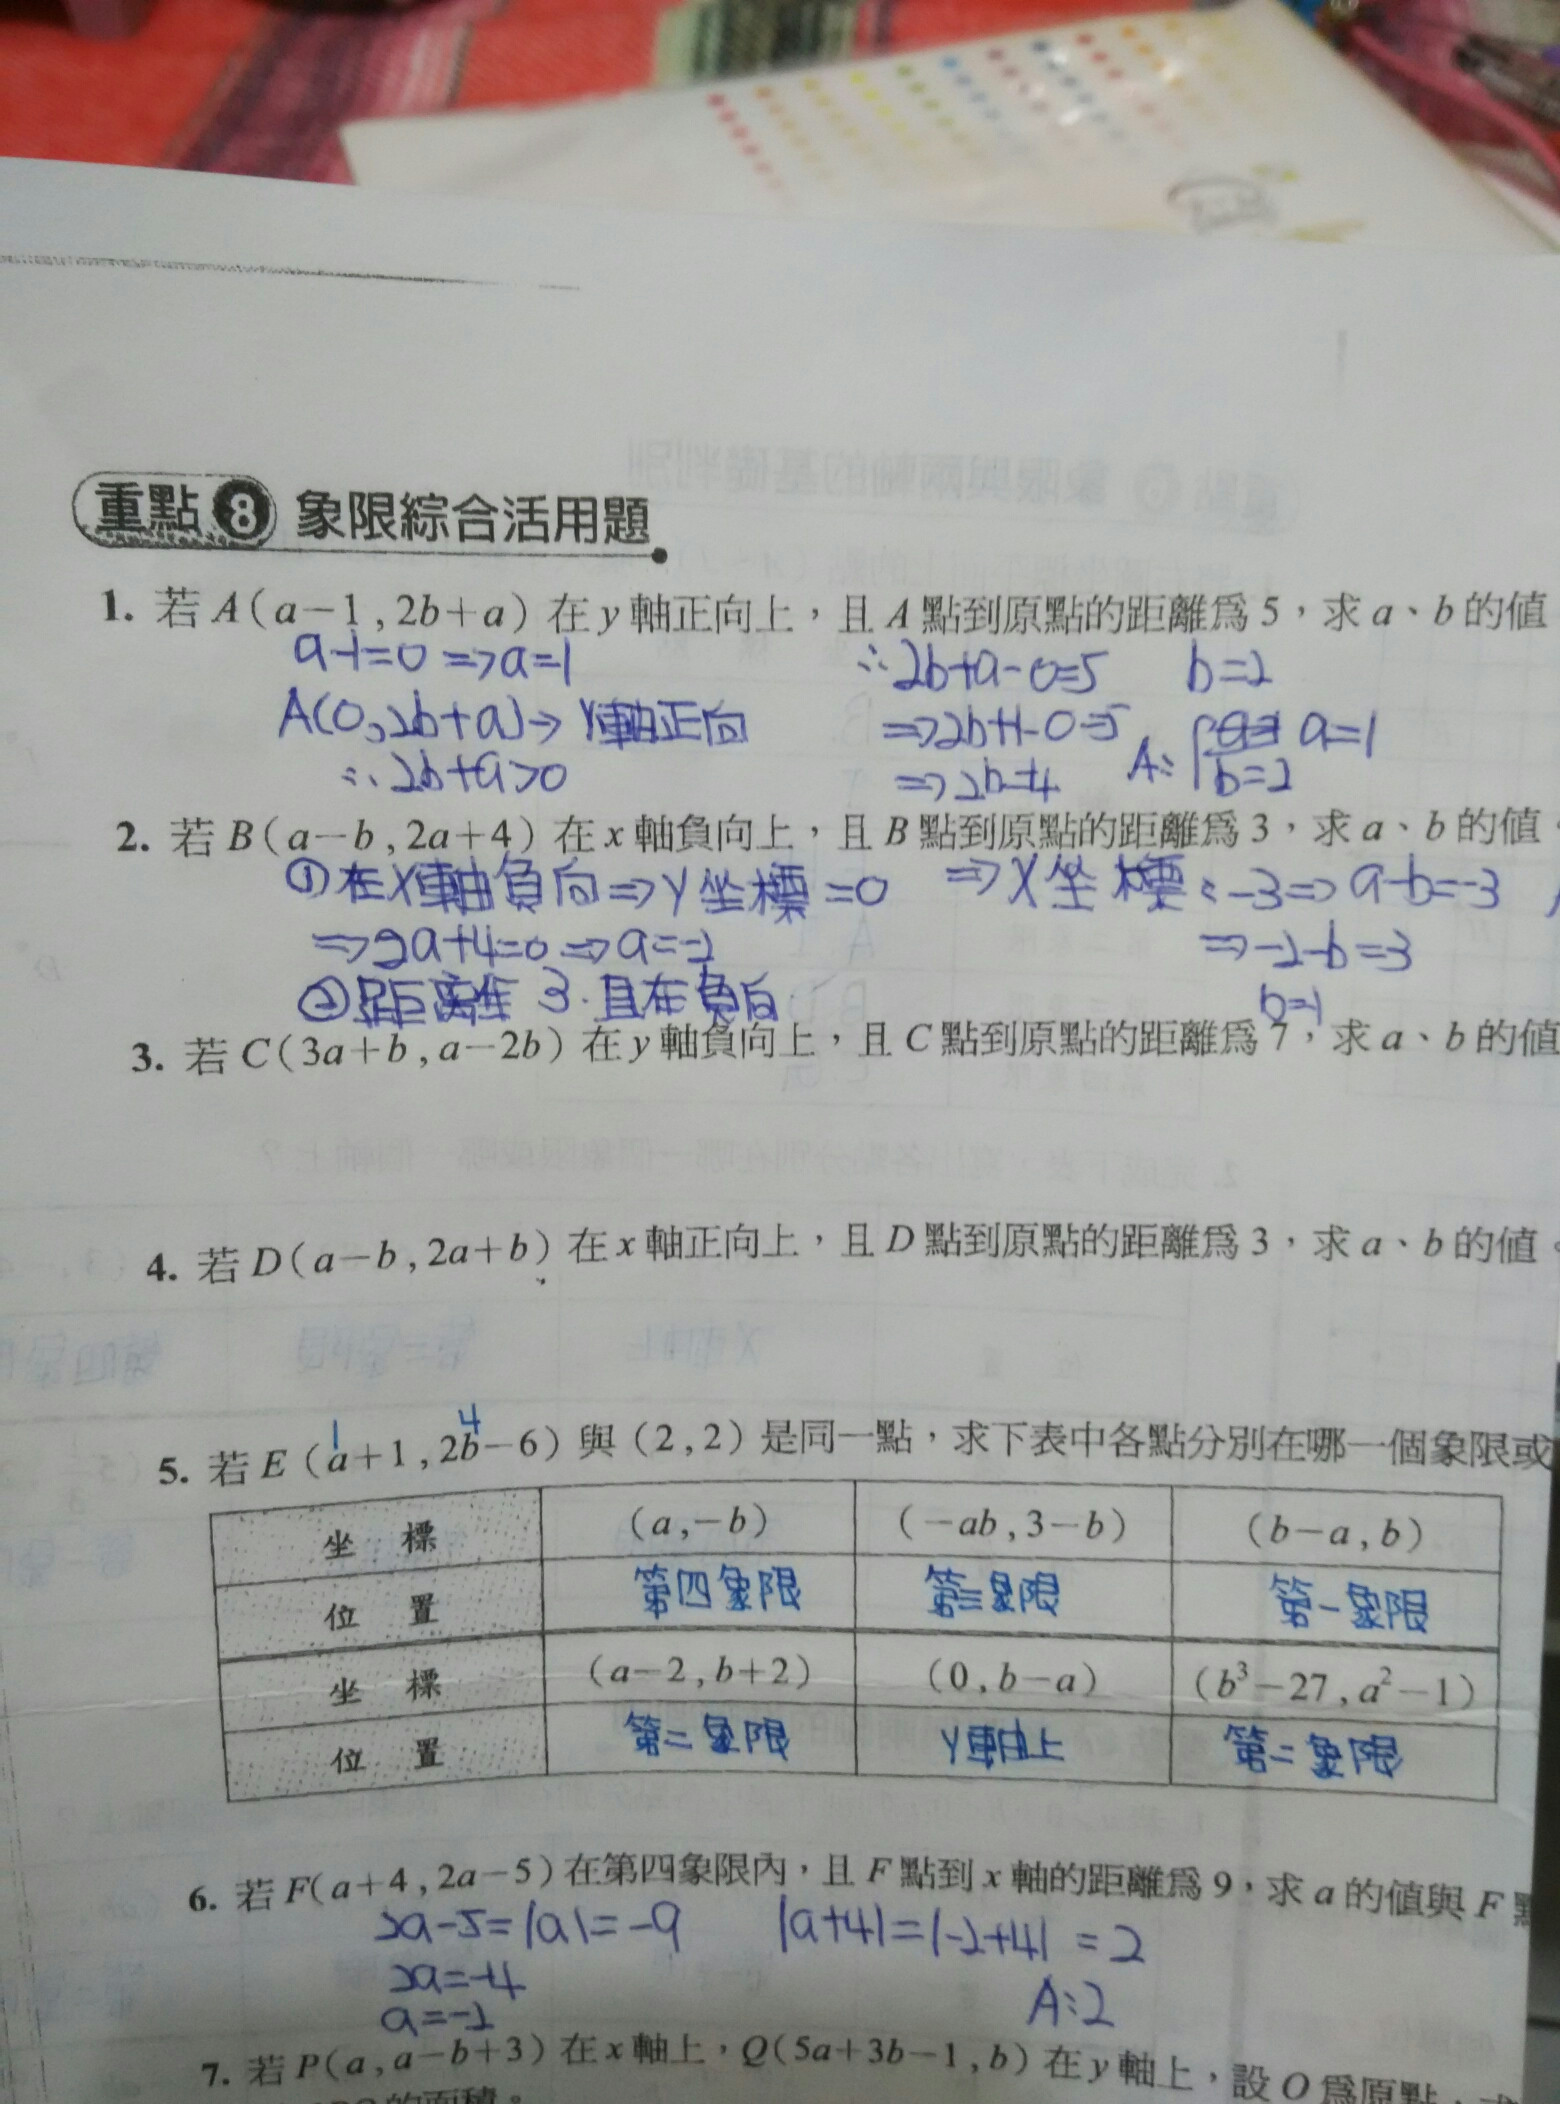 重點 8 象限綜合活用題
1. 若 A(a－1,2b＋a)在 y 軸正向上，且 A 點到原點的距離為 5，求 a、b 的值
a-1=0 => a=1
A(0,2b+a)→ Y軸正向
∴2b+a>0
∴2b+a-0=5
=>2b+1-0=5
=>2b=4
b=2
A: a=1
b=2
2. 若 B(a－b,2a＋4)在 x 軸負向上，且 B 點到原點的距離為 3，求 a、b 的值。
①在X軸負向=>Y坐標=0
=>2a+4=0 => a=-2
②距離 3.且在負向
=>X坐標:-3=> a-b=-3
=>-2-b=3
b=1
3. 若 C(3a＋b,a－2b)在 y 軸負向上，且 C 點到原點的距離為 7，求 a、b 的值
4. 若 D(a－b,2a＋b)在 x 軸正向上，且 D 點到原點的距離為 3，求 a、b 的值。
1 4
5. 若 E(a＋1,2b－6)與(2,2)是同一點，求下表中各點分別在哪一個象限或
坐標 (a,－b) (－ab,3－b) (b－a,b)
位置 第四象限 第三象限 第一象限
坐標 (a－2,b＋2) (0,b－a) (b³－27,a²－1)
位置 第二象限 Y軸上 第二象限
6. 若 F(a＋4,2a－5)在第四象限內，且 F 點到 x 軸的距離為 9，求 a 的值與 F
2a-5=|a|=-9
2a=-4
a=-2
|a+4|=|-2+4| =2
A:2
7. 若 P(a,a－b＋3)在 x 軸上，Q(5a＋3b－1,b)在 y 軸上，設 O 為原點，求
的面積。